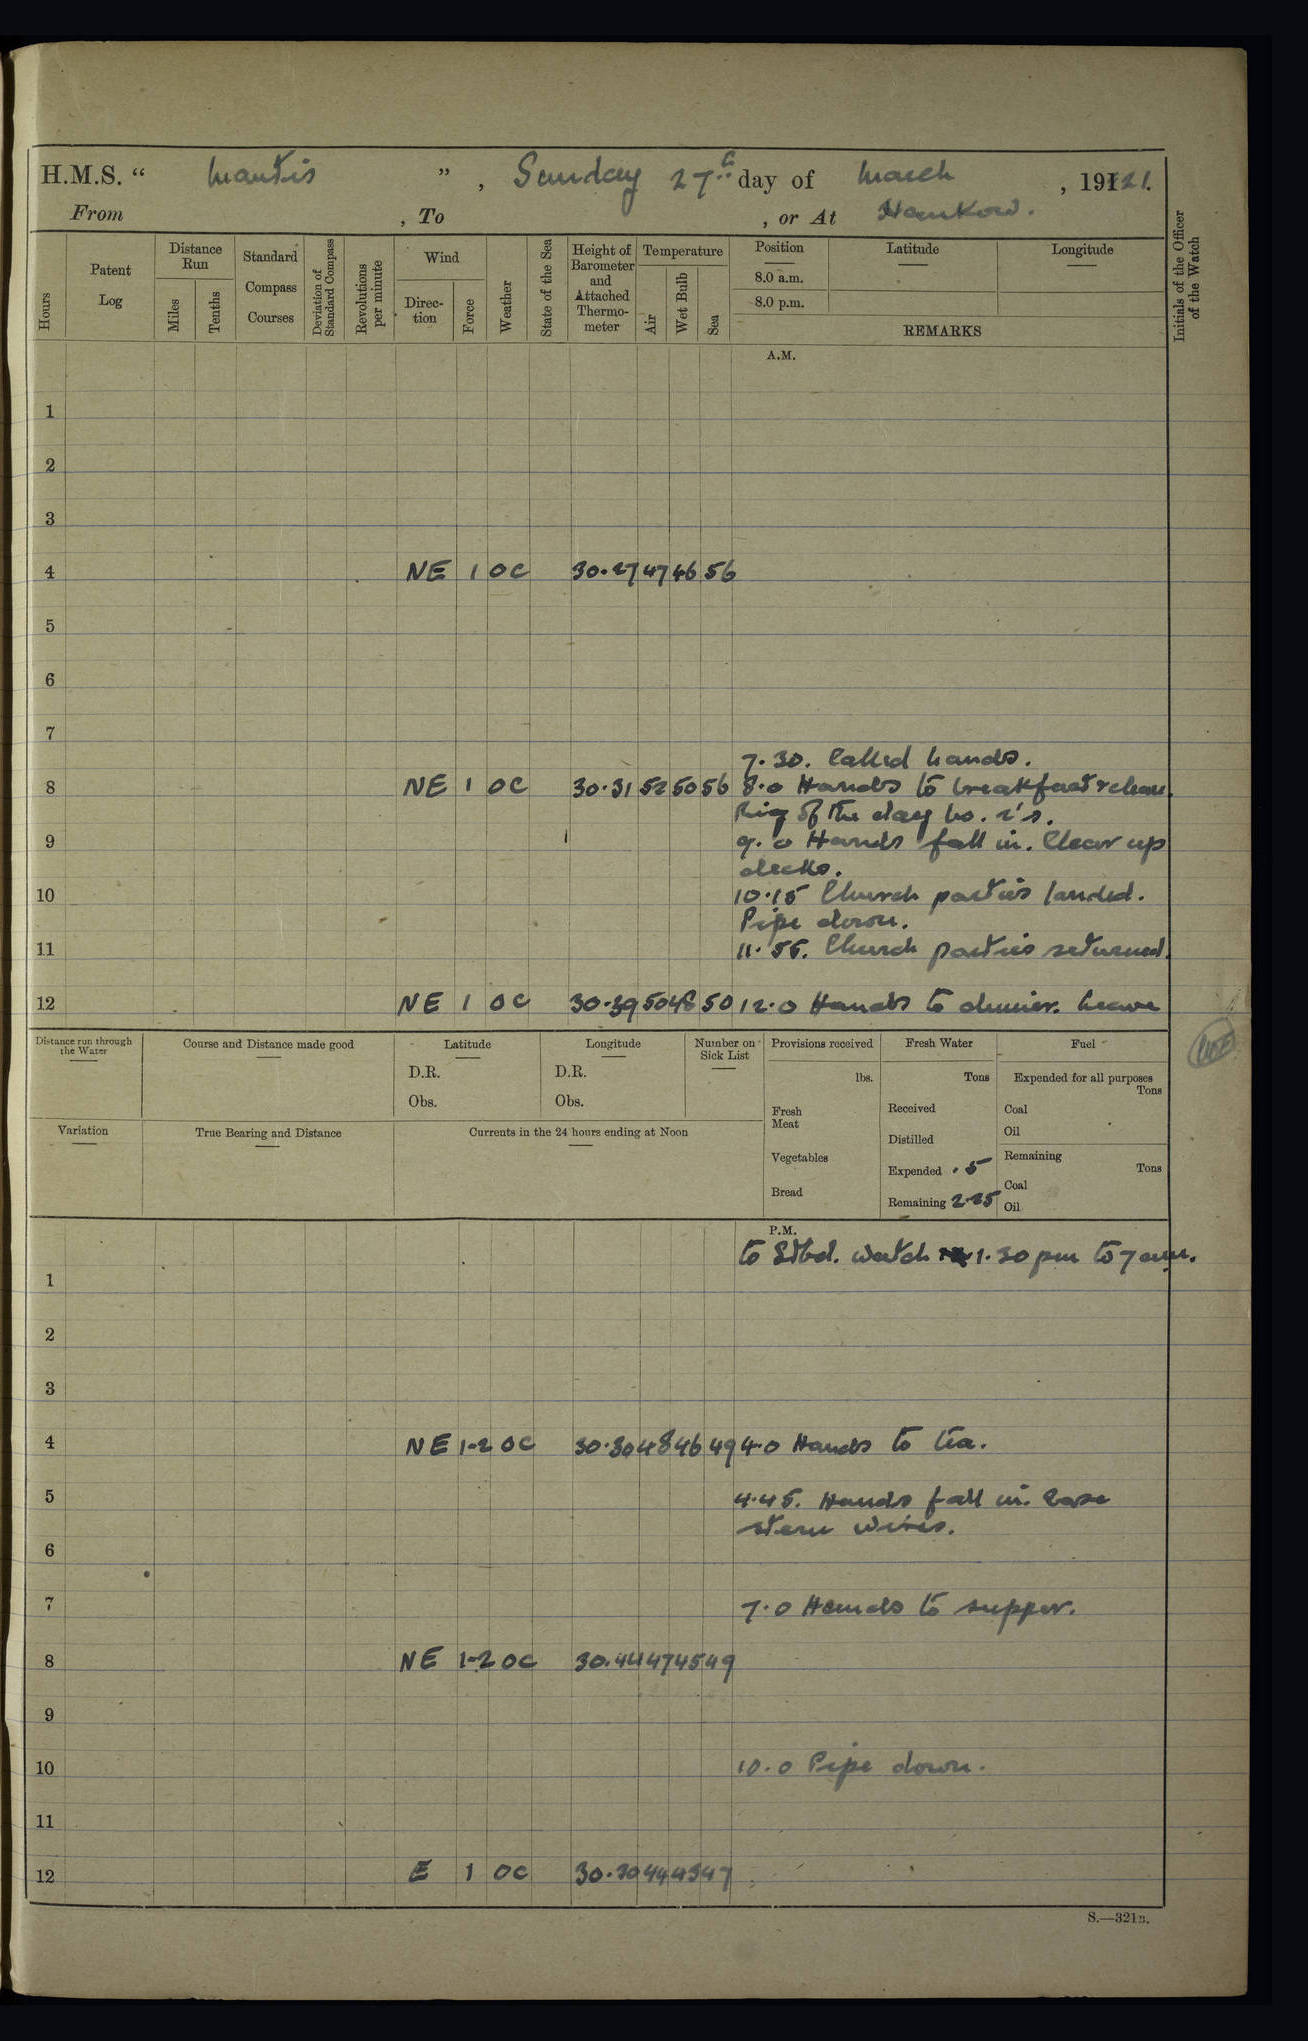 H.M.S. “ Mantis ” , Sunday 27th day of March , 1921.
From , To , or At Hankow.
Hours
Patent Log
Distance Run
Miles
Tenths
Standard Compass Courses
Deviation of Standard Compass
Revolutions per minute
Wind
Direction
Force
Weather
State of the Sea
Height of Barometer and Attached Thermometer
Temperature
Air
Wet Bulb
Sea
Position
8.0 a.m.
8.0 p.m.
Latitude
Longitude
REMARKS
Initials of the Officer of the Watch
A.M.
1
2
3
4 NE 1 OC 30.27 47 46 56
5
6
7
7.30. Called hands.
8 NE 1 OC 30.31 52 50 56 8.0 Hands to breakfast & clean.
Rig of the day No. 2's.
9 9.0 Hands fall in. Clear up
decks.
10 10.15 Church parties landed.
Pipe down.
11 11.55. Church parties returned.
12 NE 1 OC 30.39 50 48 50 12.0 Hands to dinner. Leave
Distance run through the Water
Course and Distance made good
Latitude
D.R.
Obs.
Longitude
D.R.
Obs.
Number on Sick List
Provisions received
lbs.
Fresh Meat
Vegetables
Bread
Fresh Water
Tons
Received
Distilled
Expended .5
Remaining 2.25
Fuel
Expended for all purposes
Tons
Coal
Oil
Remaining
Tons
Coal
Oil
Variation
True Bearing and Distance
Currents in the 24 hours ending at Noon
P.M.
to Stbd. watch 1.30 pm to 7 am.
1
2
3
4 NE 1-2 OC 30.30 48 46 49 4.0 Hands to tea.
5 4.45. Hands fall in. Ease
stern wires.
6
7 7.0 Hands to supper.
8 NE 1-2 OC 30.44 47 45 49
9
10 10.0 Pipe down.
11
12 E 1 OC 30.30 44 43 47
S.—321B.